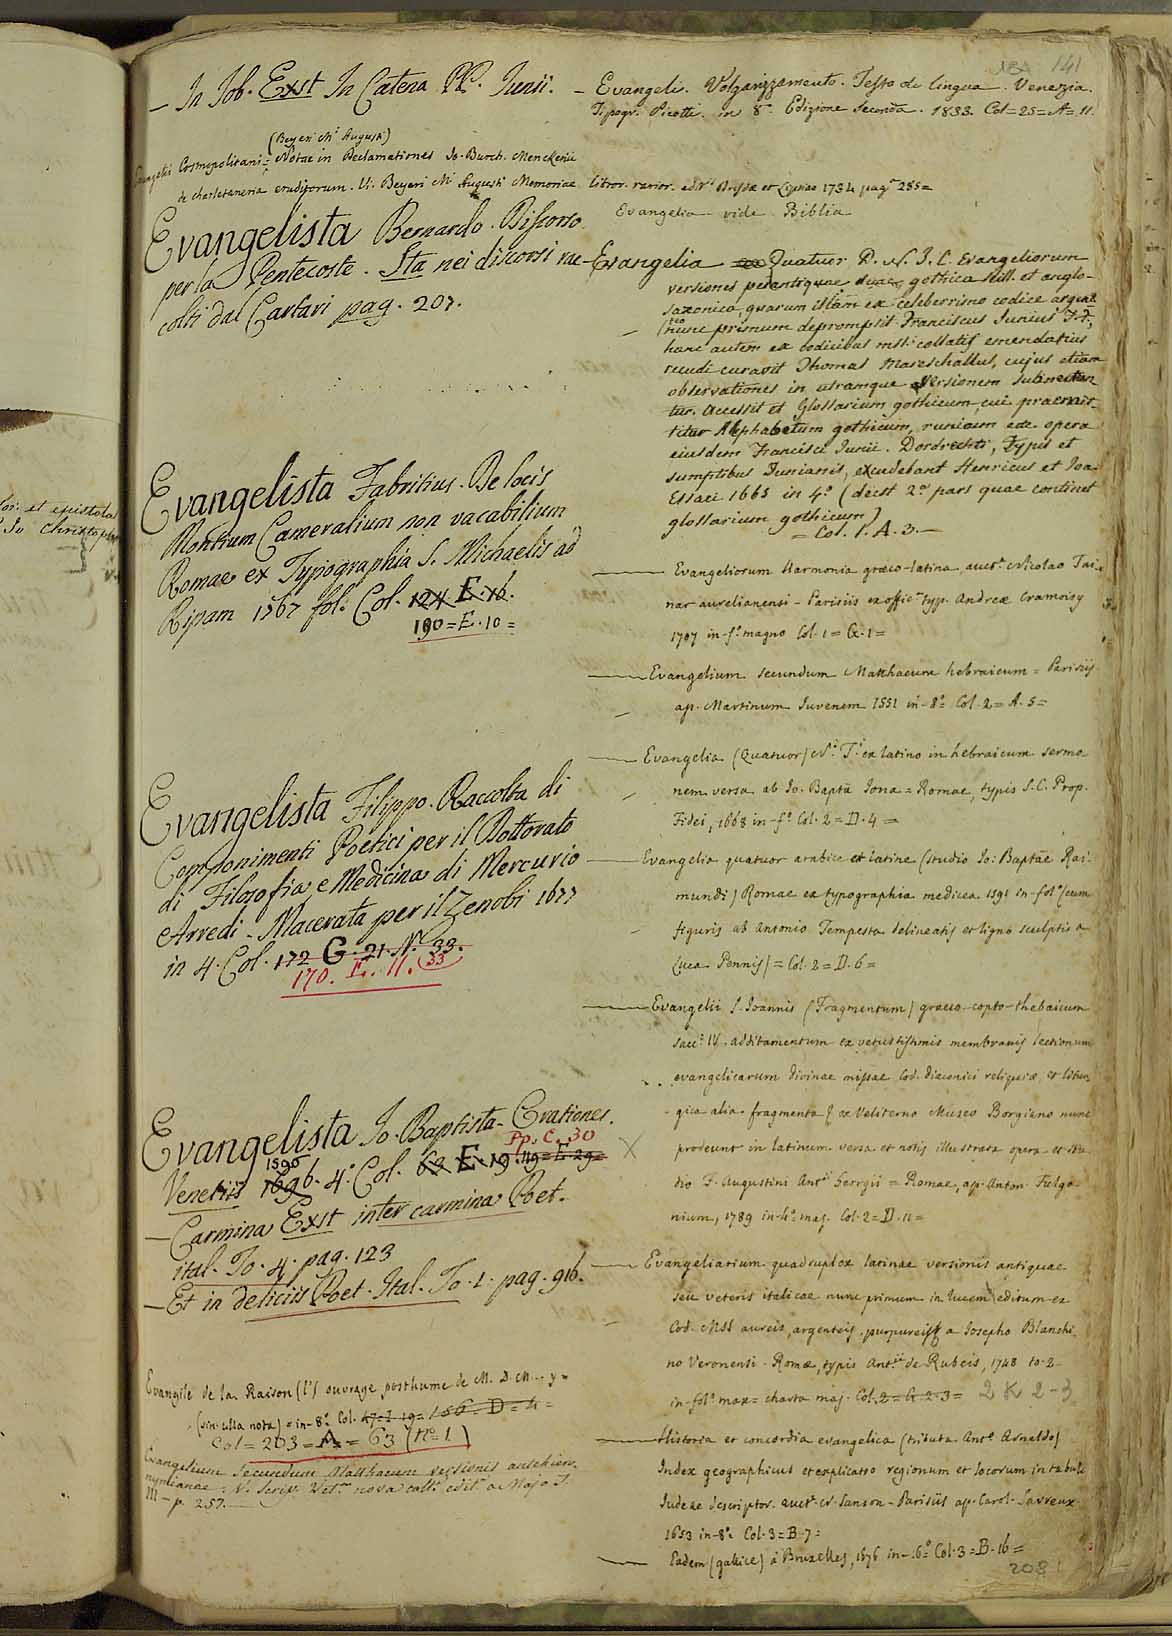 — In Job. Exst In Catena PP. Junii.
(Beyeri Mi Augusti)
Evangelii Cosmopolitani = Notae in Declamationes Jo. Burch. Menckenii
de charlataneria eruditorum. V. Beyeri Mi Augusti Memoriae libror. rarior. edit. Dresdae et Lipsiae 1734 pag. 285 =
Evangelista Bernardo. Discorso
per la Pentecoste. Sta nei discorsi rac-
colti dal Cartari pag. 207.
Evangelista Fabritius. De locis
Montium Cameralium non vacabilium
Romae ex Typographia S. Michaelis ad
Ripam 1767 fol. Col. 124 E. 16.
190 = E. 10 =
Evangelista Filippo. Raccolta di
Componimenti Poetici per il Dottorato
di Filosofia, e Medicina di Mercurio
Arredi - Macerata per il Zenobi 1677
in 4. Col. 172 G. 21. N. 33.
170. E. 11. (33
Evangelista Jo. Baptista - Orationes.
Pp. C. 30
Venetiis 1696. 4. Col. 63 E. 19. 119 = E. 29 =
1596
— Carmina Exst inter carmina Poet.
ital. To. 4. pag. 123
— Et in deliciis Poet. Ital. To. 1. pag. 916.
Evangile de la Raison (l') ouvrage posthume de M. D. M... y =
(sin. ulla nota) = in-8º Col. 47 = I. 19 = 156. D = 4 =
Col = 203 = A = 63 (nº 1)
Evangelium secundum Matthaeum versionis antehiero-
nymianae. V. Scrip. Vet. nova coll. edit. a Majo T.
III - p. 257.
141
— Evangeli. Volgarizzamento. Testo di lingua. Venezia.
Tipogr. Picotti. in 8º Edizione seconda. 1833. Col = 25 = A = 11.
Evangelia vide Biblia
— Evangelia Quatuor D. N. J. C. Evangeliorum
versiones perantiquae duae gothica scil. et anglo-
saxonica, quarum illam ex celeberrimo codice argent.
nunc primum depromsit Franciscus Junius F. F.,
hanc autem ex codicibus mss. collatis emendatius
recudi curavit Thomas Mareschallus, cujus etiam
observationes in utramque Versionem subnectun-
tur. Accessit et Glossarium gothicum, cui praemit-
titur Alphabetum gothicum, runicum etc. opera
eiusdem Francisci Junii. Dordrechti, Typis et
sumptibus Junianis, excudebant Henricus et Joa.
Essaei 1665 in 4º (deest 2ª pars quae continet
glossarium gothicum)
= Col. 1. A. 3. —
— Evangeliorum Harmonia graeco-latina, auct. Nicolao Toi-
nar aurelianensi - Parisiis ex offic. typ. Andreae Cramoisy
1707 in-fº magno Col. 1 = G. 1 =
— Evangelium secundum Matthaeum hebraicum = Parisiis
ap. Martinum Juvenem 1551 in-8º Col. 2 = A. 5 =
— Evangelia (Quatuor) Ni Ti ex latino in hebraicum sermo-
nem versa ab Jo. Bapta Jona = Romae, typis S. C. Prop.
Fidei, 1668 in-fº Col. 2 = D. 4 =
— Evangelia quatuor arabice et latine (studio Jo: Baptae Rai-
mundi) Romae ex typographia medicea 1591 in-folº (cum
figuris ab Antonio Tempesta delineatis et ligno sculptis a
Luca Pennis) = Col. 2 = D. 6 =
— Evangelii S. Joannis (Fragmentum) graeco-copto-thebaicum
saec. IV. additamentum ex vetustissimis membranis lectionum
evangelicarum divinae missae Cod. diaconici reliquiae, et litur-
gica alia fragmenta &c ex Veliterno Museo Borgiano nunc
prodeunt in latinum versa et notis illustrata opera et stu-
dio F. Augustini Antii Georgii = Romae, ap. Anton. Fulgo-
nium, 1789 in-4º maj. Col. 2 = D. 11 =
— Evangeliarium quadruplex latinae versionis antiquae
seu veteris italicae nunc primum in lucem editum ex
Cod. MSS aureis, argenteis, purpureis &c a Josepho Blanchi-
no Veronensi - Romae, typis Antii de Rubeis, 1748 to. 2
in-folº max = charta maj. Col. 2 = G. 2. 3 = 2 K 2-3
— Historia et concordia evangelica (tributa Antº Arnaldo)
Index geographicus et explicatio regionum et locorum in tabula
Judeae descriptor. auct. N. Sanson - Parisiis ap. Carol. Savreux
1653 in-8º Col. 3 = B. 7 =
— Eadem (gallice) à Bruxelles, 1676 in-16º Col. 3 = B. 16 =
208